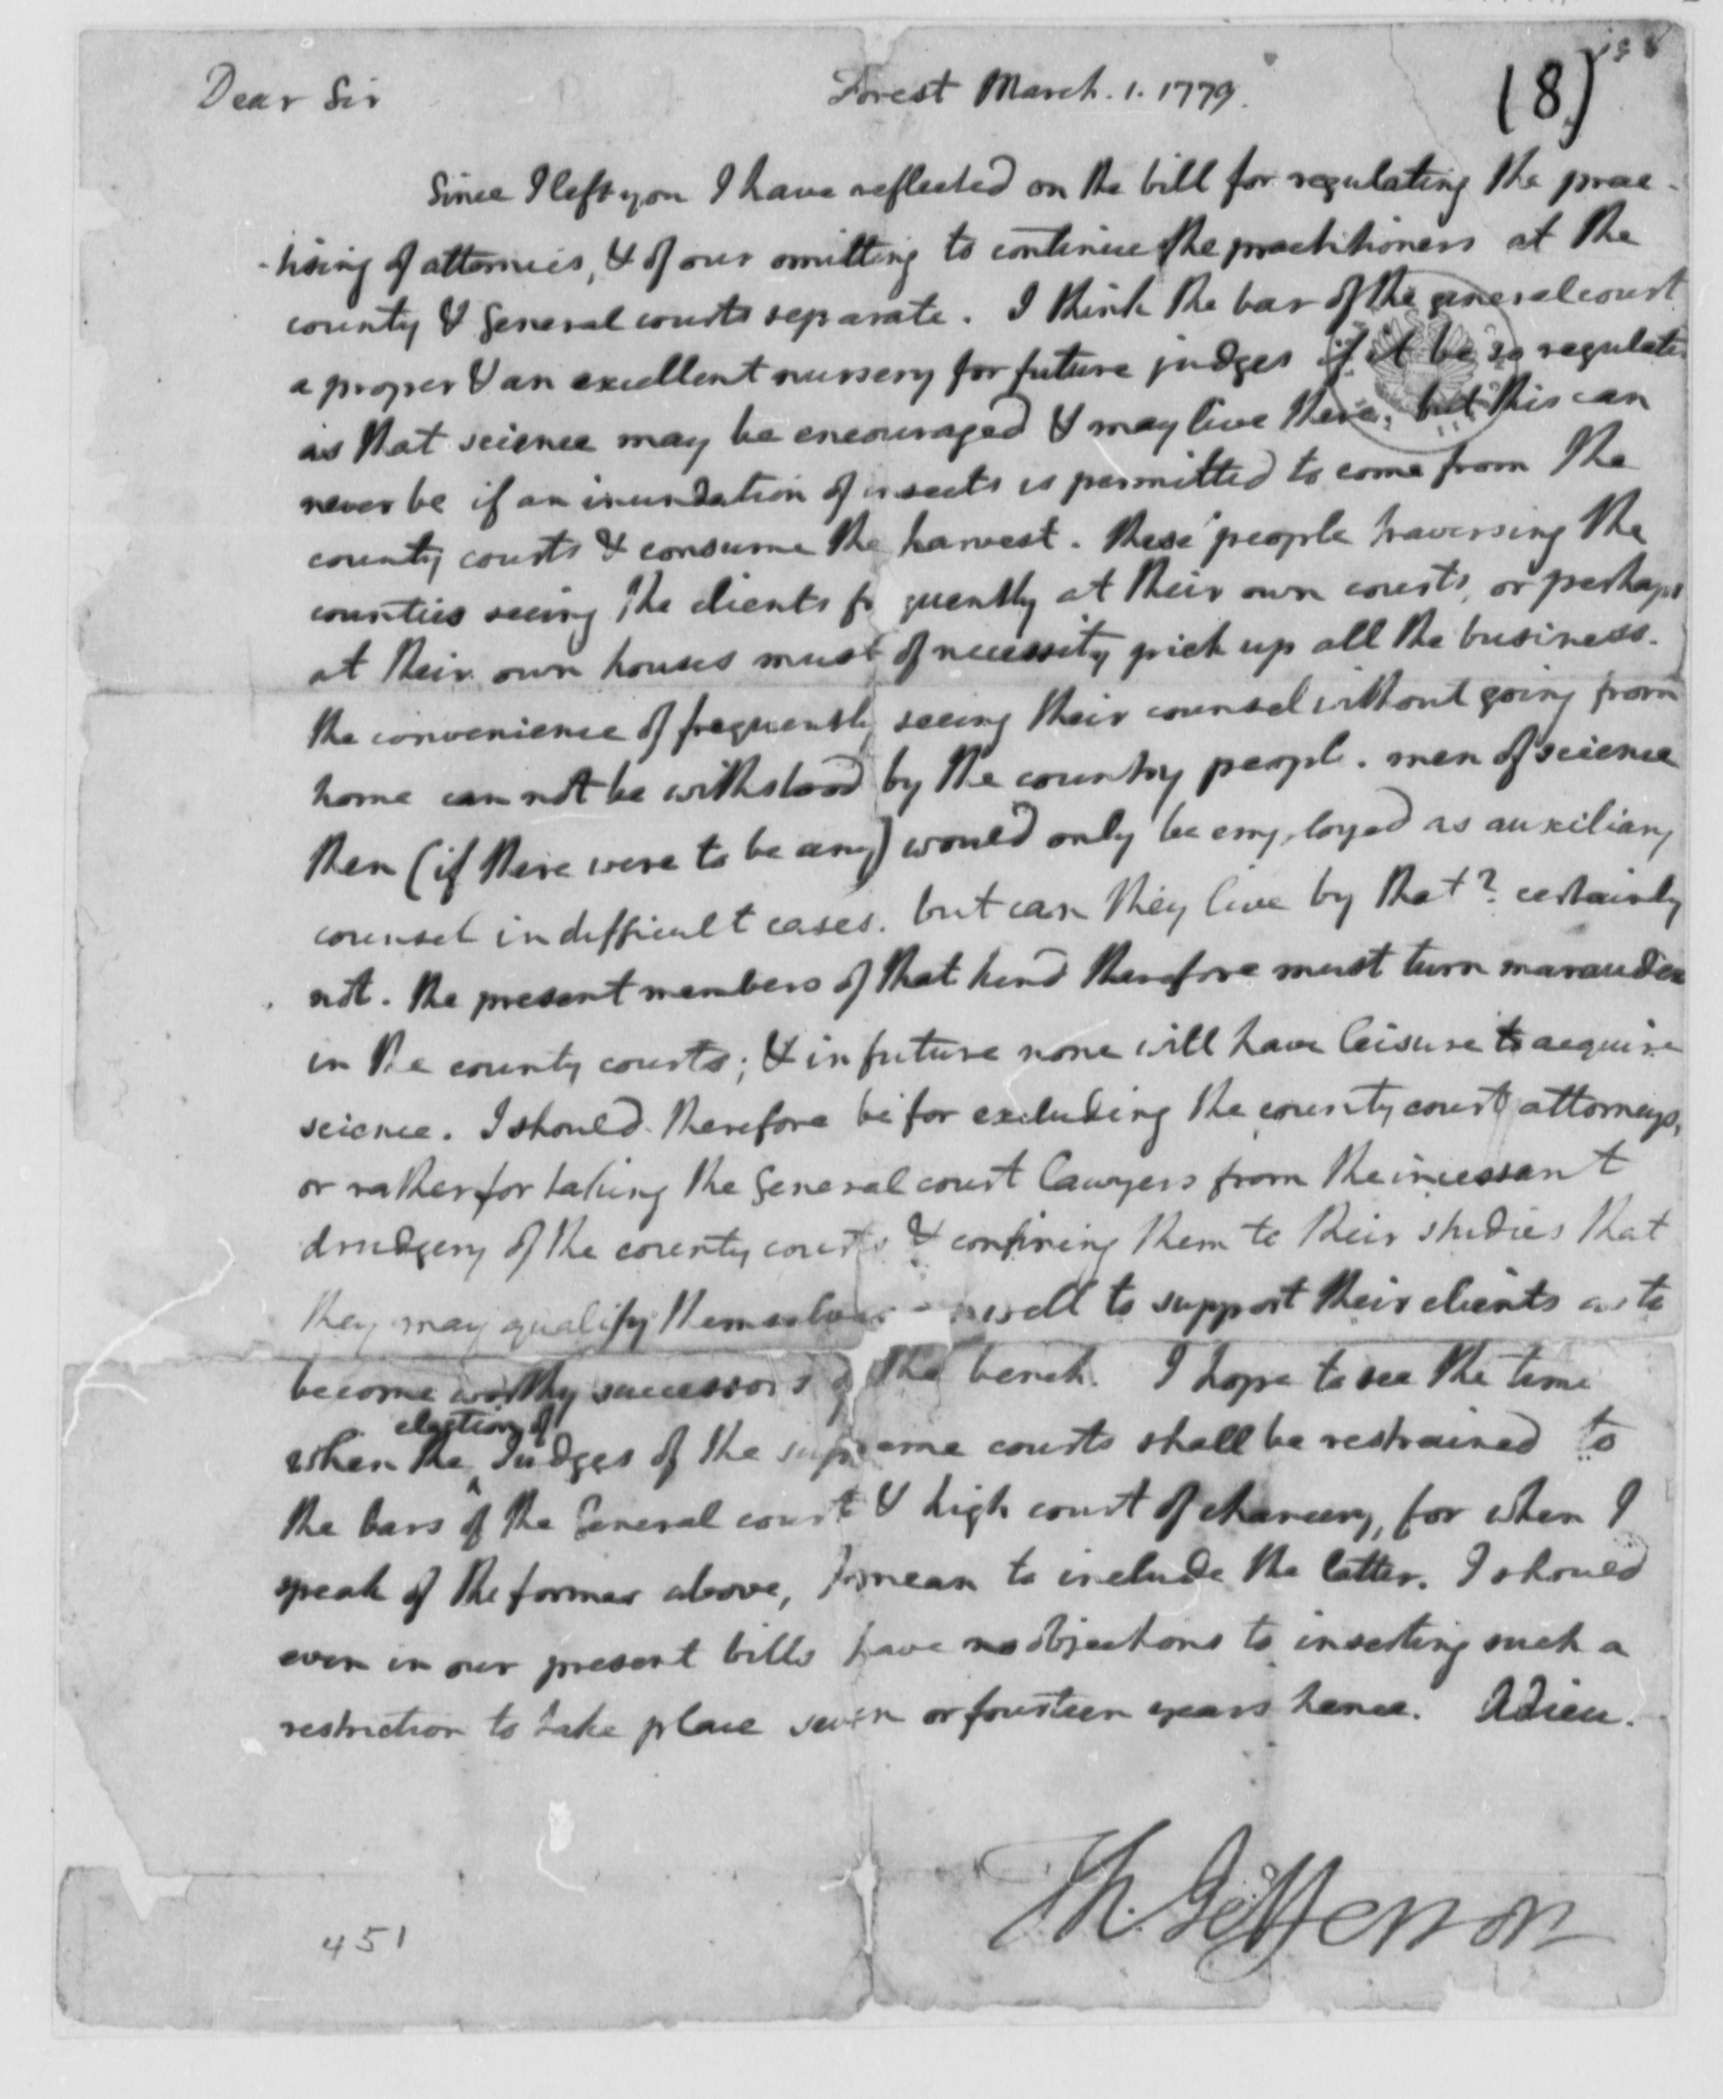 Dear Sir Forest March. 1. 1779.
(8)
Since I left you I have reflected on the bill for regulating the prac-
-tising of attornies, & of our omitting to continue the practitioners at the
county & General courts separate. I think the bar of the general court
a proper & an excellent nursery for future judges if it be so regulated
as that science may be encouraged & may live there. but this can
never be if an inundation of insects is permitted to come from the
county courts & consume the harvest. these people traversing the
counties seeing the clients frequently at their own courts, or perhaps
at their own houses must of necessity pick up all the business.
the convenience of frequently seeing their counsel without going from
home can not be withstood by the country people. men of science
then (if there were to be any) would only be employed as auxiliary
counsel in difficult cases. but can they live by that? certainly
not. the present members of that kind therefore must turn marauders
in the county courts; & in future none will have leisure to acquire
science. I should therefore be for excluding the county court attorneys,
or rather for taking the General court lawyers from the incessant
drudgery of the county courts & confining them to their studies that
they may qualify themselves as well to support their clients as to
become worthy successors of the bench. I hope to see the time
when the election of Judges of the supreme courts shall be restrained to
the bars of the General court & high court of chancery, for when I
speak of the former above, I mean to include the latter. I should
even in our present bills have no objections to inserting such a
restriction to take place seven or fourteen years hence. Adieu.
Th. Jefferson
451